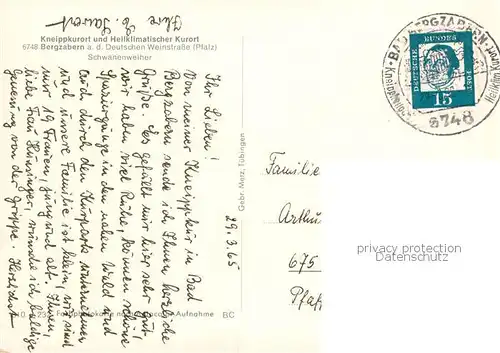 Ihre E. Sauert
Kneippkurort und Heilklimatischer Kurort
6748 Bergzabern a. d. Deutschen Weinstraße (Pfalz)
Schwanenweiher
29.3.65
Ihr Lieben!
Von meiner Kneippkur in Bad
Bergzabern sende ich Ihnen herzliche
Grüße. Es gefällt mir hier sehr gut,
wir haben viel Ruhe, können schöne
Spaziergänge in den nahen Wald und
auch durch den Kurpark unternehmen
und unsere Familie ist klein, wir sind
nur 19 Frauen, jung und alt. Ihnen,
liebe Frau Hunsinger, wünsche ich baldige
Genesung von der Grippe. Herzlichst
Gebr. Metz, Tübingen
Aufnahme
BC
BAD BERGZABERN
Kneippkurort
Heilklim
6748
DEUTSCHE
BUNDES
POST
15
Familie
Arthu
675
Pfaf
privacy protection
Datenschutz